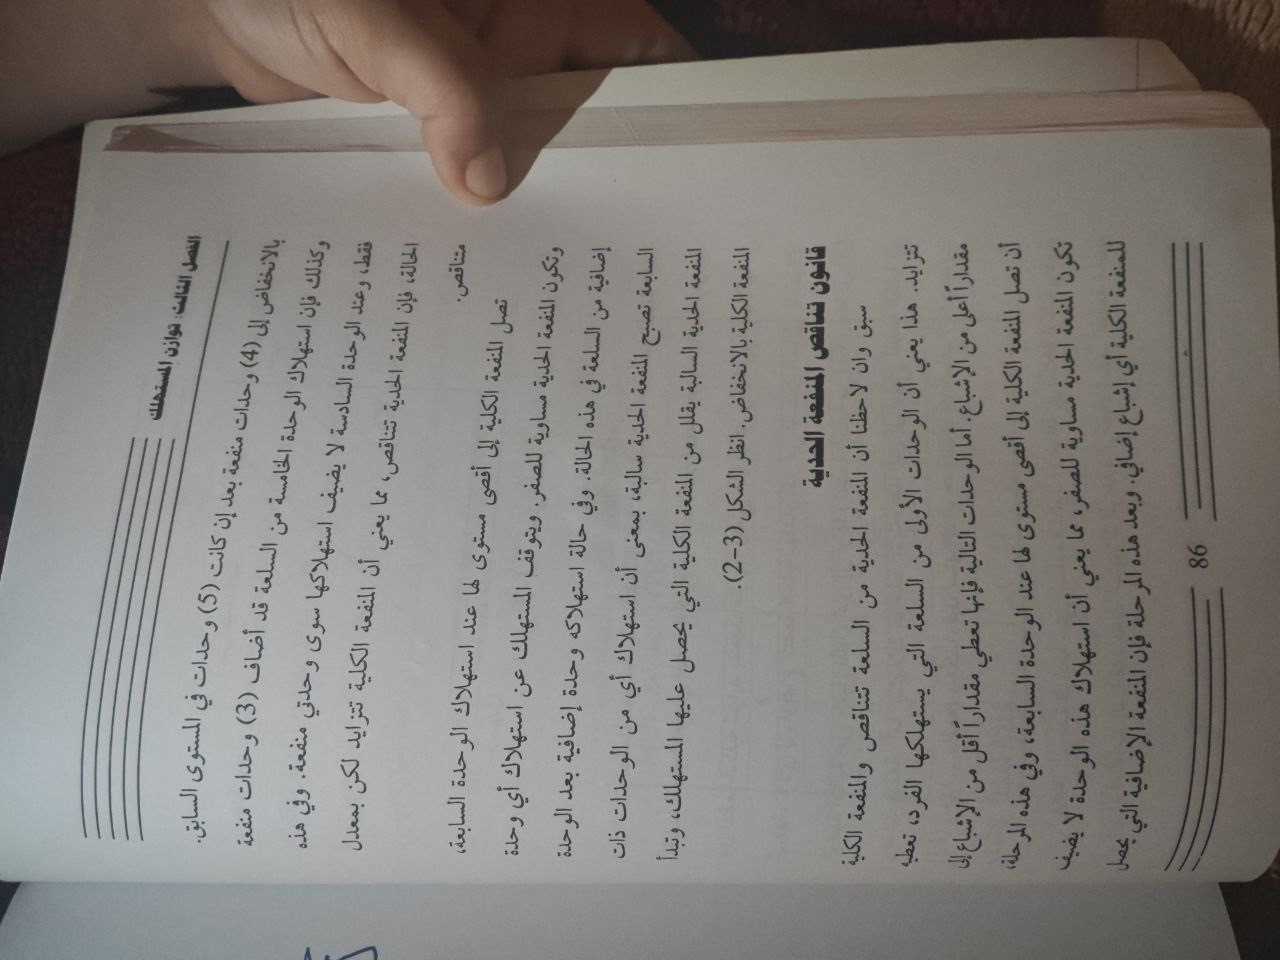 الفصل الثالث: توازن المستهلك
بالانخفاض إلى (4) وحدات منفعة بعد إن كانت (5) وحدات في المستوى السابق.
وكذلك فإن استهلاك الوحدة الخامسة من السلعة قد أضاف (3) وحدات منفعة
فقط، وعند الوحدة السادسة لا يضيف استهلاكها سوى وحدتي منفعة. وفي هذه
الحالة، فإن المنفعة الحدية تتناقص، مما يعني أن المنفعة الكلية تتزايد لكن بمعدل
متناقص.
تصل المنفعة الكلية إلى أقصى مستوى لها عند استهلاك الوحدة السابعة،
وتكون المنفعة الحدية مساوية للصفر. ويتوقف المستهلك عن استهلاك أي وحدة
إضافية من السلعة في هذه الحالة. وفي حالة استهلاكه وحدة إضافية بعد الوحدة
السابعة تصبح المنفعة الحدية سالبة، بمعنى أن استهلاك أي من الوحدات ذات
المنفعة الحدية السالبة يقلل من المنفعة الكلية التي يحصل عليها المستهلك، وتبدأ
المنفعة الكلية بالانخفاض. انظر الشكل (3-2).
قانون تناقص المنفعة الحدية
سبق وان لاحظنا أن المنفعة الحدية من السلعة تتناقص والمنفعة الكلية
تتزايد. هذا يعني أن الوحدات الأولى من السلعة التي يستهلكها الفرد، تعطيه
مقداراً أعلى من الإشباع. أما الوحدات التالية فإنها تعطي مقداراً أقل من الإشباع إلى
أن تصل المنفعة الكلية إلى أقصى مستوى لها عند الوحدة السابعة، وفي هذه المرحلة،
تكون المنفعة الحدية مساوية للصفر، مما يعني أن استهلاك هذه الوحدة لا يضيف
للمنفعة الكلية أي إشباع إضافي. وبعد هذه المرحلة فإن المنفعة الإضافية التي يحصل
86